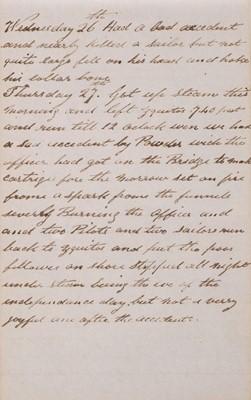 Wednesday 26th Had a bad accedent
and nearly killed a sailor but not
quite cargo fell on his head and broke
his collar bone
Thursday 27th Got up steam this
morning and left Yquitos 7.40 past
and run till 12 oclock wen we had
a sad accedent by Powder wich the
officer had got on the Bridge to make
cartrige fore the morrow set on fire
frome a spark frome the funnele
severly Burning the officer and
and two Pilots and two sailors run
back to Yquitos and put the poor
fellowes on shore stopped all night
under steam being the eve of the
independance day, but not a very
joyful one after the accedent.